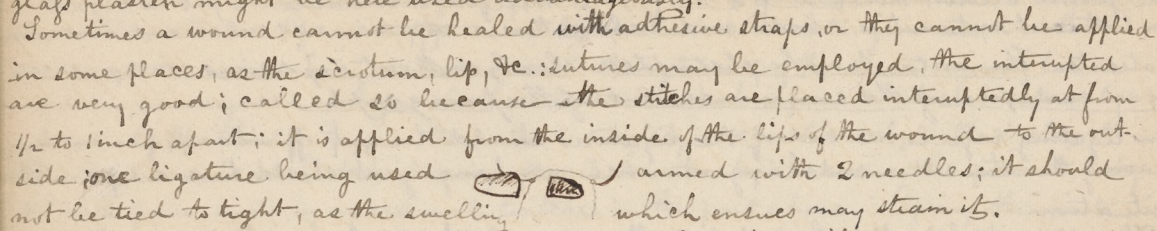 glass plaster might be here used advantageously.
Sometimes a wound cannot be healed with adhesive straps, or they cannot be applied
in some places, as the scrotum, lip, &c.: sutures may be employed, the interupted
are very good; called so because the stitches are placed interuptedly at from
1/2 to 1 inch apart; it is applied from the inside of the lips of the wound to the out-
side; one ligature being used armed with 2 needles; it should
not be tied to tight, as the swelling which ensues may strain it.